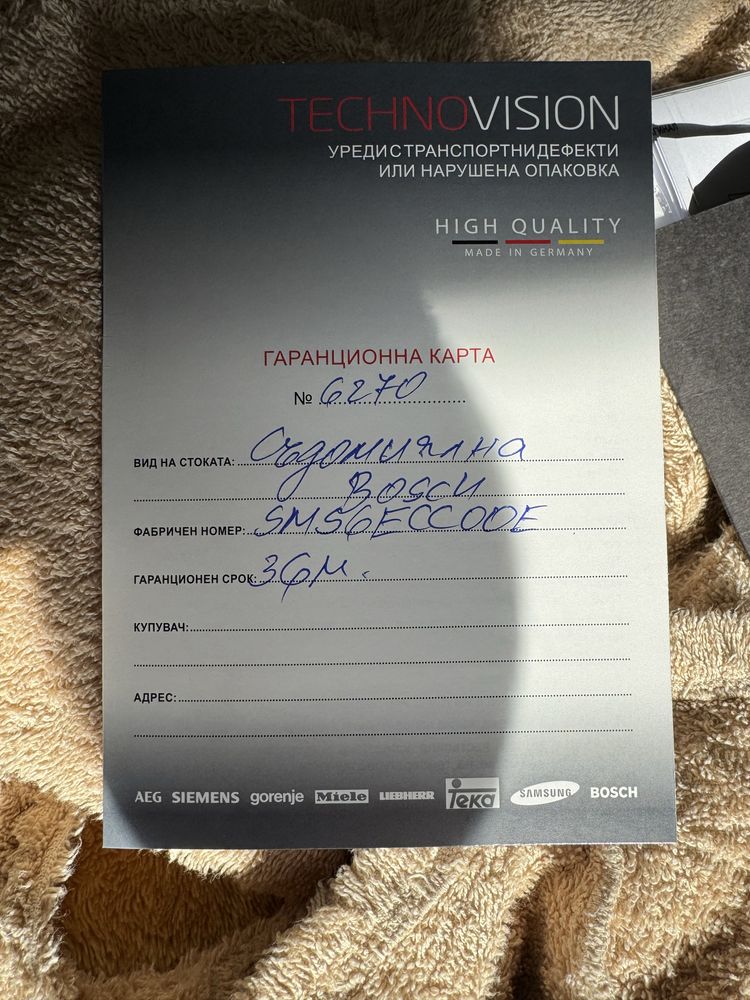 TECHNOVISION
УРЕДИ С ТРАНСПОРТНИ ДЕФЕКТИ
ИЛИ НАРУШЕНА ОПАКОВКА
HIGH QUALITY
MADE IN GERMANY
ГАРАНЦИОННА КАРТА
№ 6270
ВИД НА СТОКАТА: Съдомиялна
ФАБРИЧЕН НОМЕР: SMS6ECC00E
ГАРАНЦИОНЕН СРОК: 36м.
КУПУВАЧ:
АДРЕС:
AEG SIEMENS gorenje Miele LIEBHERR Teka SAMSUNG BOSCH